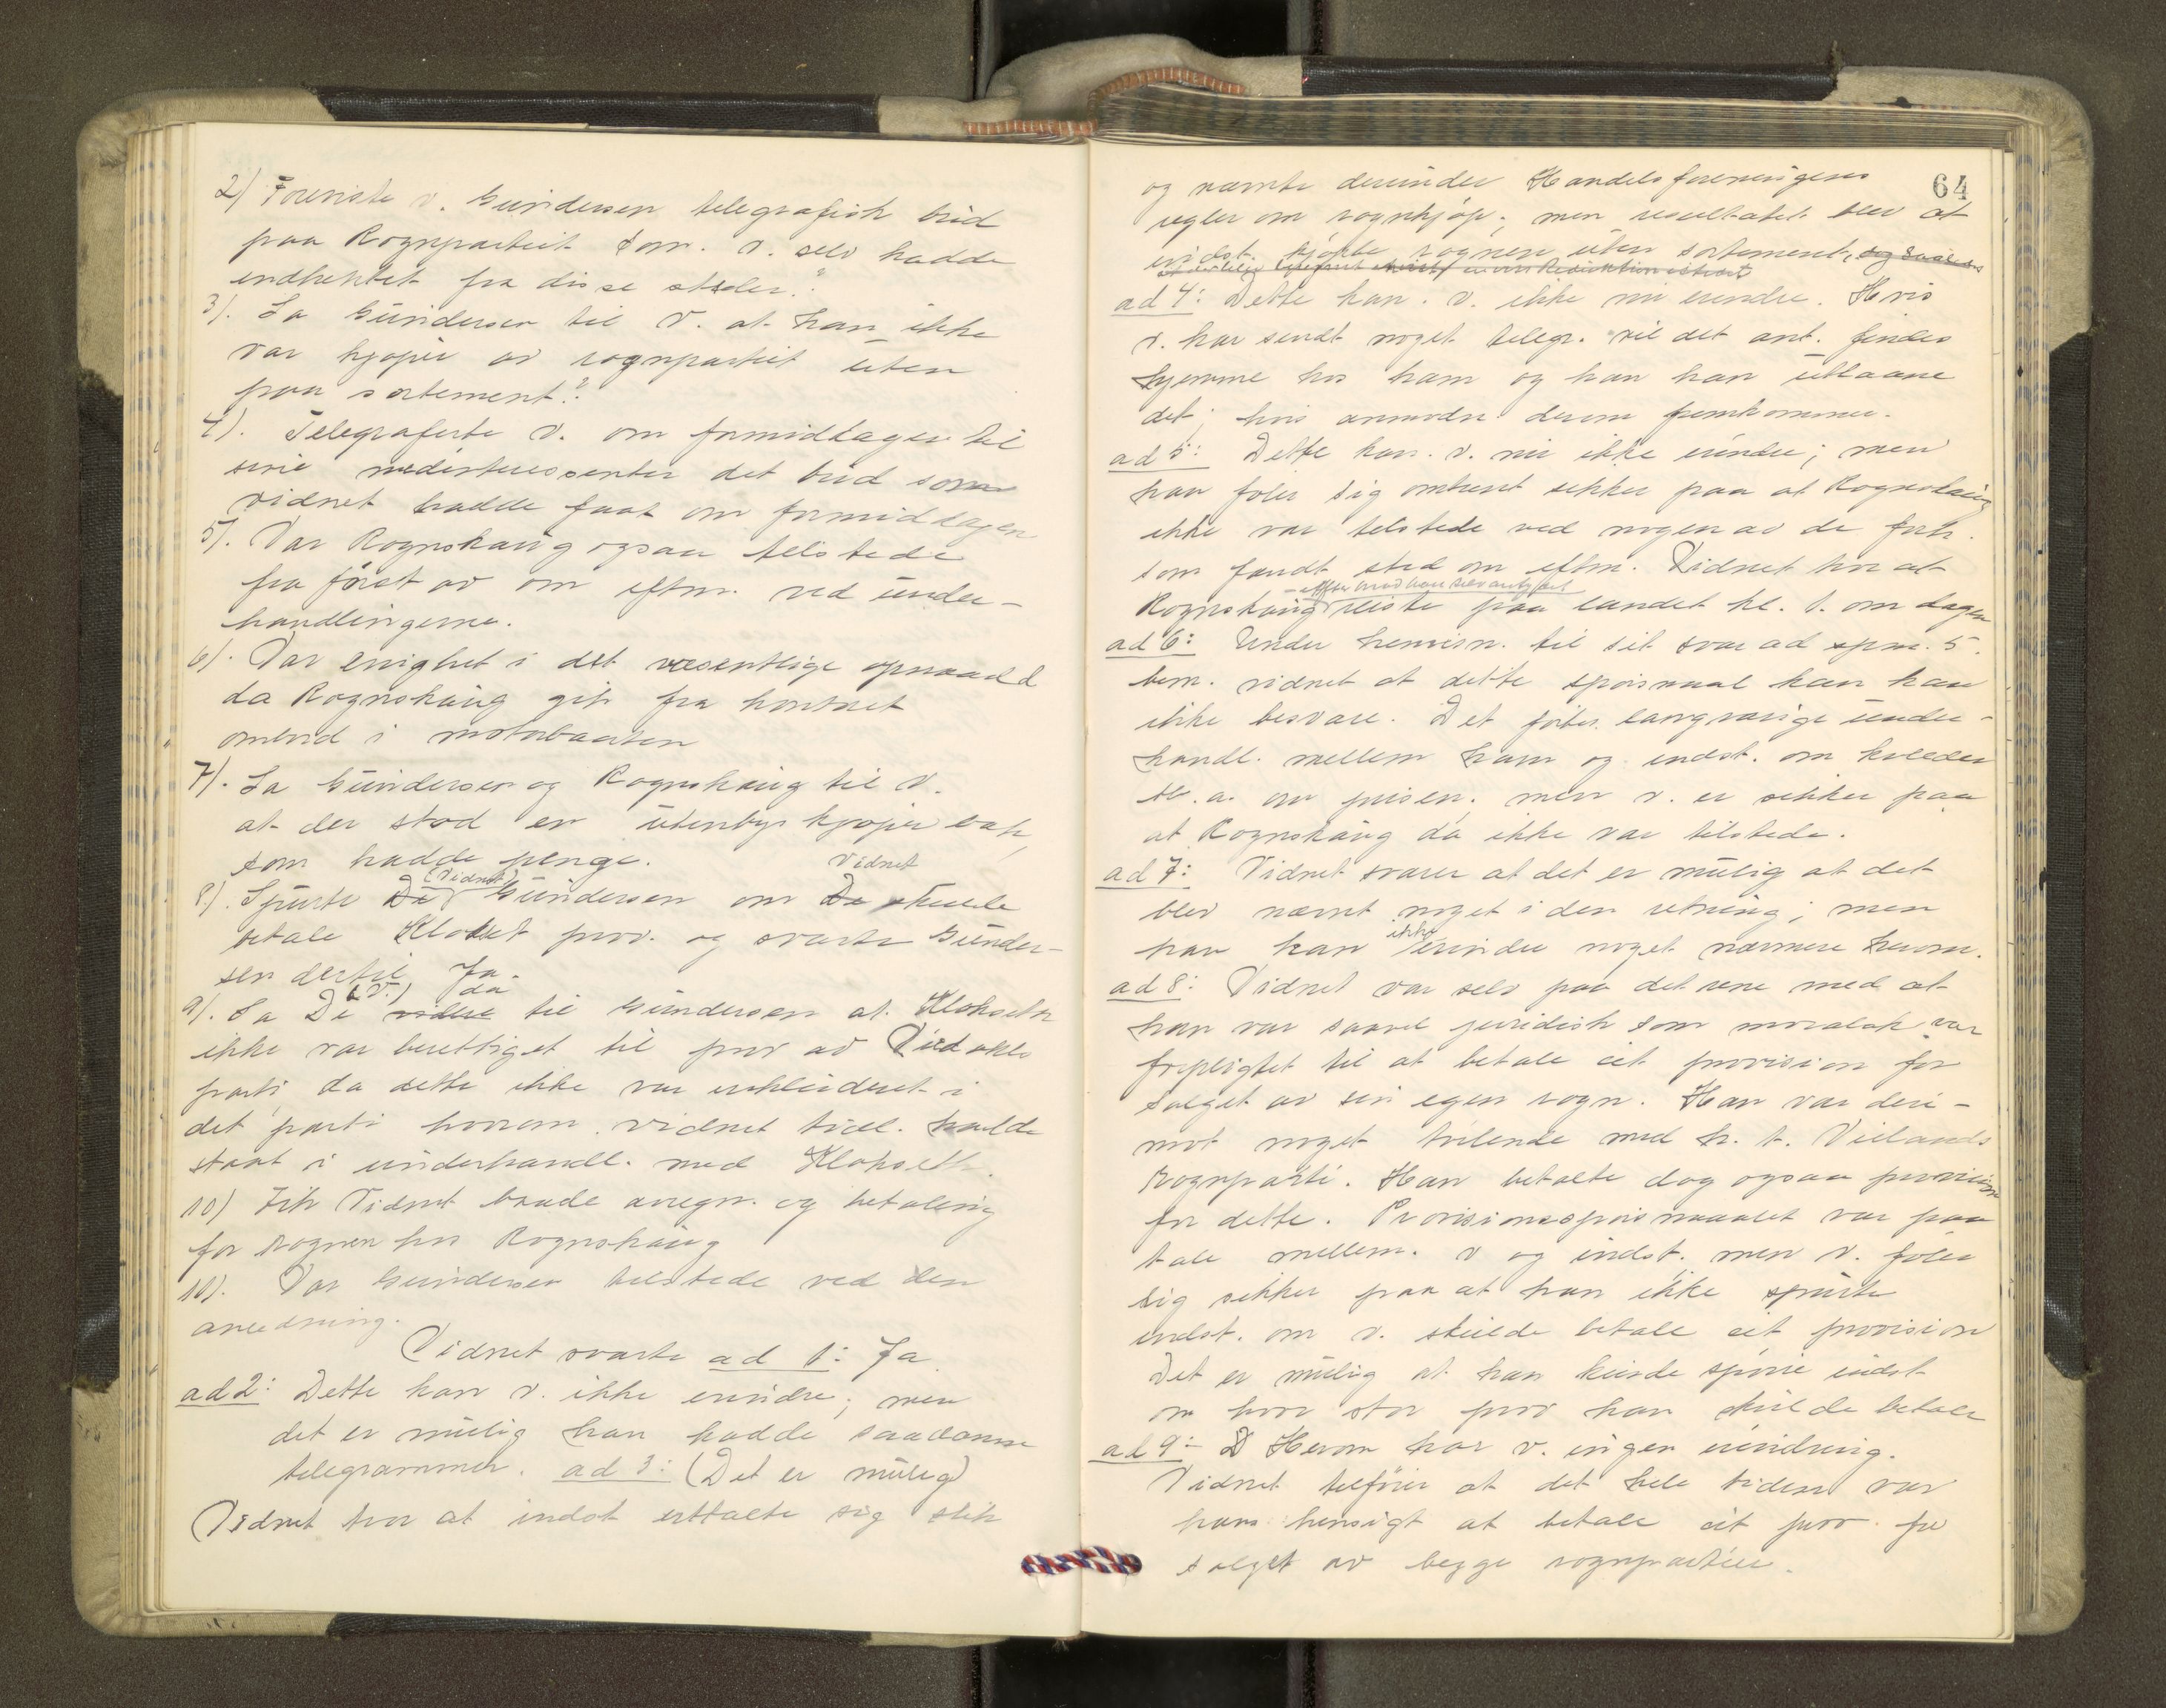 2) Foreviste v. Gundersen telegrafisk bud
paa Rognpartiet som v. selv hadde
indhentet fra disse steder."
3). Sa Gundersen til V. at han ikke
var kjøper av rognpartiet uten
paa sortement."
4). Telegraferte V. om formiddagen til
sine medinteressenter det bud som
vidnet hadde faat om formiddagen
5). Var Rognskaug ogsaa tilstede
fra først av om eftm. ved under-
handlingerne.
6). Var enighet i det væsentlige opnaadd
da Rognskaug gik fra kontoret
ombord i motorbaaten
7). Sa Gundersen og Rognskaug til V.
at der stod en utenbys kjøper bak,
som hadde penge.
8). Spurte De (Vidnet) Gundersen om De vidnet skulde
betale Klokset prov. og svarte Gunder-
sen dertil Ja.
9). Sa De (V.) videre da til Gundersen at Klokseth
ikke var berettiget til prov av
parti da dette ikke var inkluderet i
det parti hvorom vidnet tidl. hadde
staat i underhandl. med Klokseth.
10) Fik Vidnet baade avregn. og betaling
for rognen hos Rognskaug
10). Var Gundersen tilstede ved den
anledning.
Vidnet svarte ad 1: Ja.
ad 2: Dette kan v. ikke erindre; men
det er mulig han hadde saadanne
telegrammer. ad 3: (Det er mulig)
Vidnet tror at indst uttalte sig slik
64
og nævnte derunder Handelsforeningens
regler om rognkjøp; men resultatet blev at
indst. kjøpte rognen uten sortement,
ad 4: Dette kan v. ikke nu erindre. Hvis
v. har sendt noget telegr. vil det ant. findes
hjemme hos ham og han kan utlaane
det, hvis anmodn. derom fremkommer.
ad 5: Dette kan v. nu ikke erindre; men
han føler sig omtrent sikker paa at Rognskaug
ikke var tilstede ved nogen av de forh.
som fandt sted om eftm. Vidnet tror at
- efter hvad han selv antydet
Rognskaug reiste paa landet kl. 1. om dagen
ad 6: Under henvisn. til sit svar ad spm. 5.
bem. vidnet at dette spørsmaal kan han
ikke besvare. Det førtes langvarige under-
handl. mellem ham og indst. om kvelden
bl. a. om prisen, men v. er sikker paa
at Rognskaug da ikke var tilstede.
ad 7: Vidnet svarer at det er mulig at det
blev nævnt noget i den retning; men
han kan ikke erindre noget nærmere herom.
ad 8: Vidnet var selv paa det rene med at
han var saavel juridisk som moralsk var
forpligtet til at betale eit provision for
salget av sin egen rogn. Han var deri-
mot noget tvilende med h. t. Vielands
Rognparti. Han betalte dog ogsaa provision
for dette. Provisionsspørsmaalet var paa
tale mellem v og indst. men v. føler
sig sikker paa at han ikke spurte
indst. om v. skulde betale eit provision
Det er mulig at han kunde spørre indst
om hvor stor prov han skulde betale
ad 9: Herom har v. ingen erindring.
Vidnet tilføier at det hele tiden var
hans hensigt at betale eit prov. for
salget av begge rognpartier.